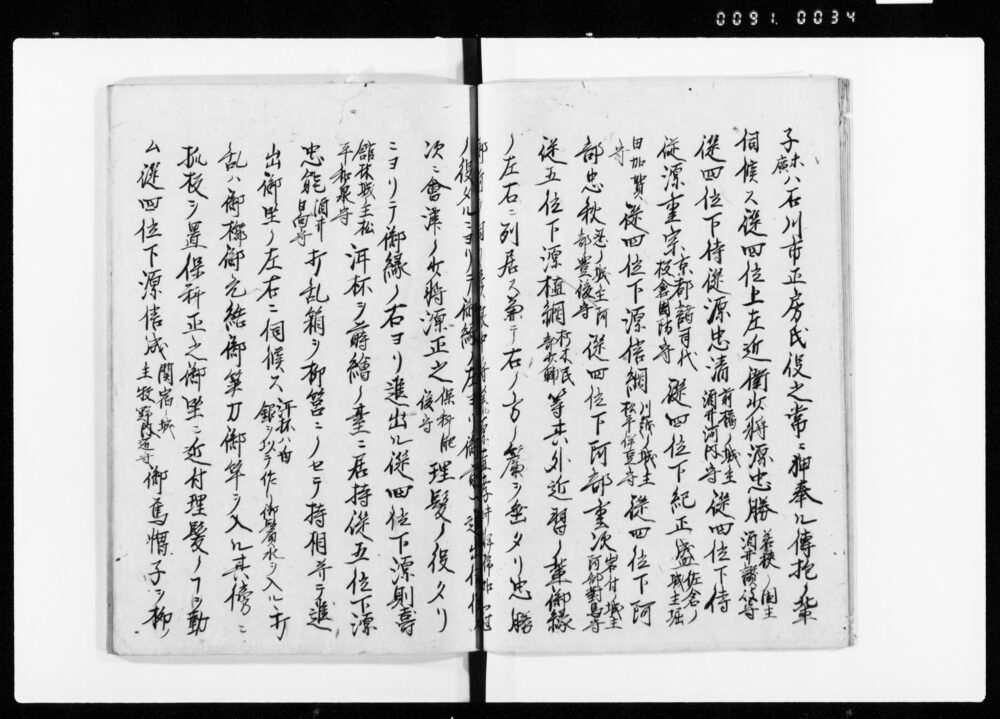 0091.0034
子ハ石川市正房氏役之常ニ狎奉ル傅抱ノ輩
伺候ス従四位上左近衛少将源忠勝若狭ノ国主酒井讃岐守
従四位下侍従源忠清前橋ノ城主酒井河内守従四位下侍
従源重宗京都諸司代板倉周防守従四位下紀正盛佐倉ノ城主堀
田加賀守従四位下源信綱川越ノ城主松平伊豆守従四位下阿
部忠秋忍ノ城主阿部豊後守従四位下阿部重次岩付ノ城主阿部対馬守
従五位下源植綱朽木民部少輔等其外近習ノ輩御縁
ノ左右ニ列居ス兼テ右ノ方ノ簾ヲ垂タリ忠勝
ノ役タルニヨリテ御縁ノ左ヨリ御前ニ
次ニ會津ノ少将源正之保科肥後守理髪ノ役タリ
ニヨリテ御縁ノ右ヨリ進出ル従四位下源則壽
館林城主松平和泉守泔杯ヲ蒔繪ノ臺ニ居持従五位下源
忠能酒井日向守打乱箱ヲ柳筥ニノセテ持相并テ進
出御坐ノ左右ニ伺候ス泔杯ハ白銀ヲ以テ作リ御鬢水ヲ入ル打
乱ハ御櫛御元結御笄刀御笄ヲ入ル其傍ニ
扣校シ置保科正之御坐ニ近付理髪ノ フヲ勤
ム従四位下源信成関宿ノ城主牧野内匠守御烏帽子ヲ柳